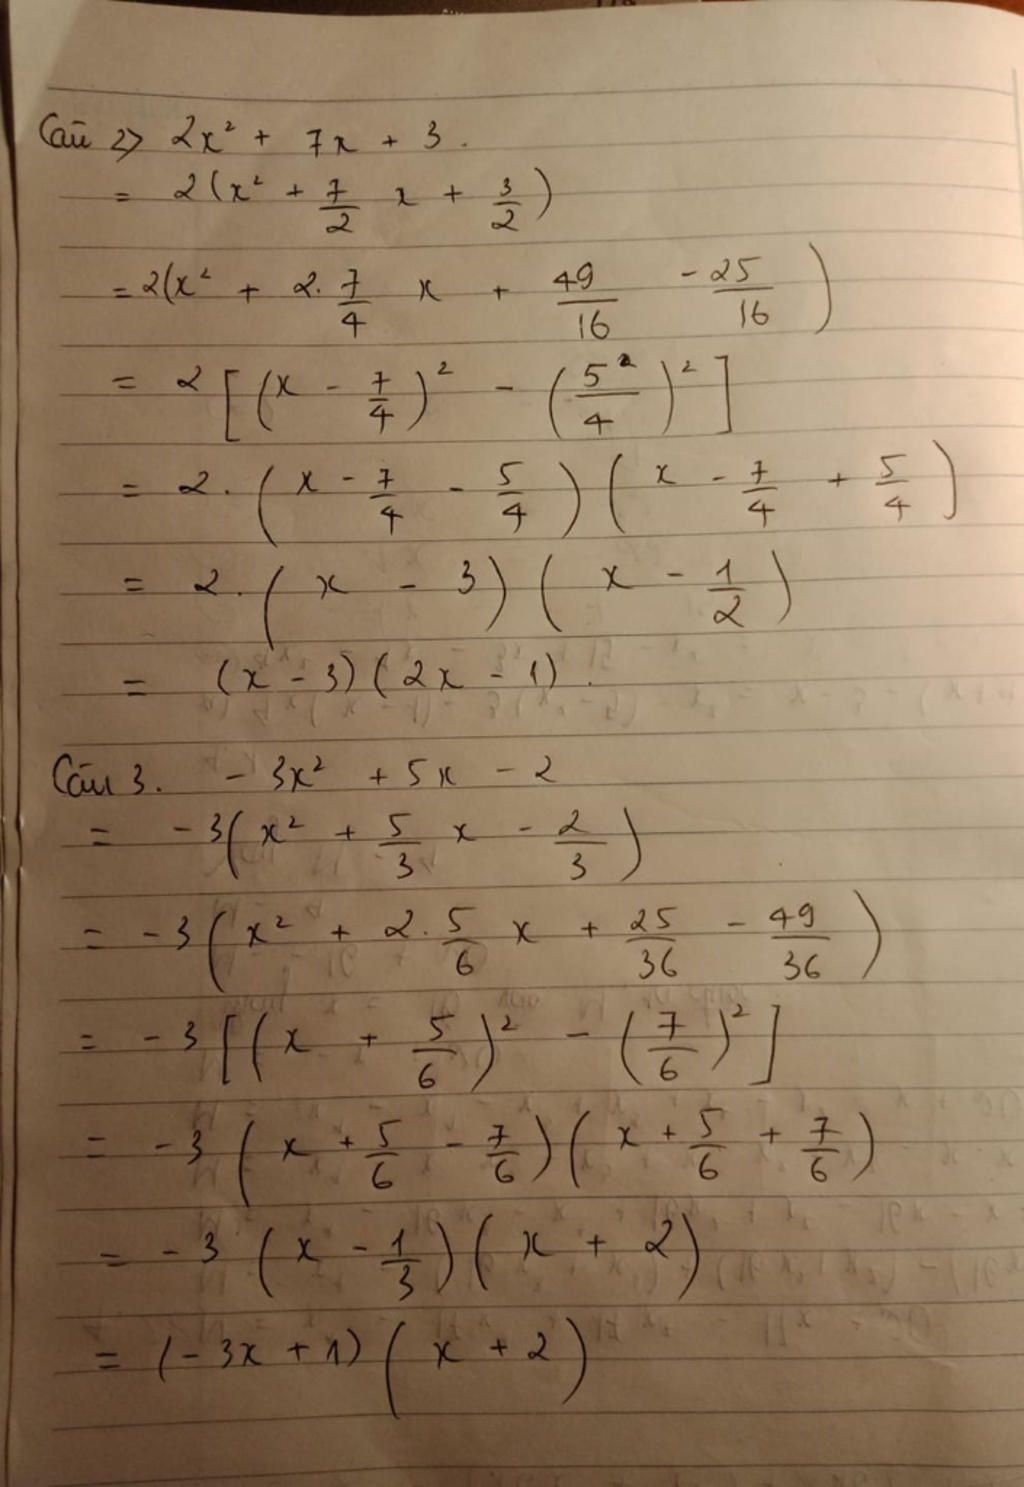 Câu 2> 2x² + 7x + 3.
= 2(x² + 7/2 x + 3/2)
= 2(x² + 2. 7/4 x + 49/16 - 25/16)
= 2 [(x - 7/4)² - (5²/4)²]
= 2. (x - 7/4 - 5/4) (x - 7/4 + 5/4)
= 2. (x - 3) (x - 1/2)
= (x - 3) (2x - 1).
Câu 3. - 3x² + 5x - 2
= - 3(x² + 5/3 x - 2/3)
= - 3 (x² + 2. 5/6 x + 25/36 - 49/36)
= - 3 [(x + 5/6)² - (7/6)²]
= - 3 (x + 5/6 - 7/6) (x + 5/6 + 7/6)
= - 3 (x - 1/3) (x + 2)
= (- 3x + 1) (x + 2)